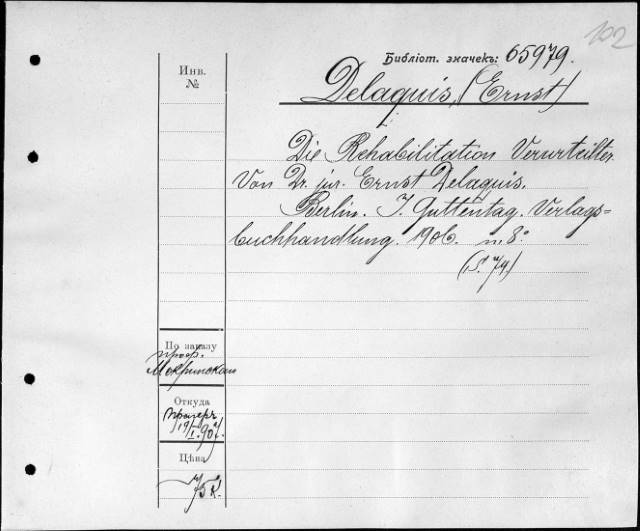 102
Библіот. значекъ: 65979.
Инв.
№
Delaquis, (Ernst)
Die Rehabilitation Verurteilter.
Von Dr. jur. Ernst Delaquis.
Berlin. J. Guttentag. Verlags=
buchhandlung. 1906. in 8°.
(S. 74)
По заказу
проф.
Откуда
19/I 907.
Цѣна
75 к.